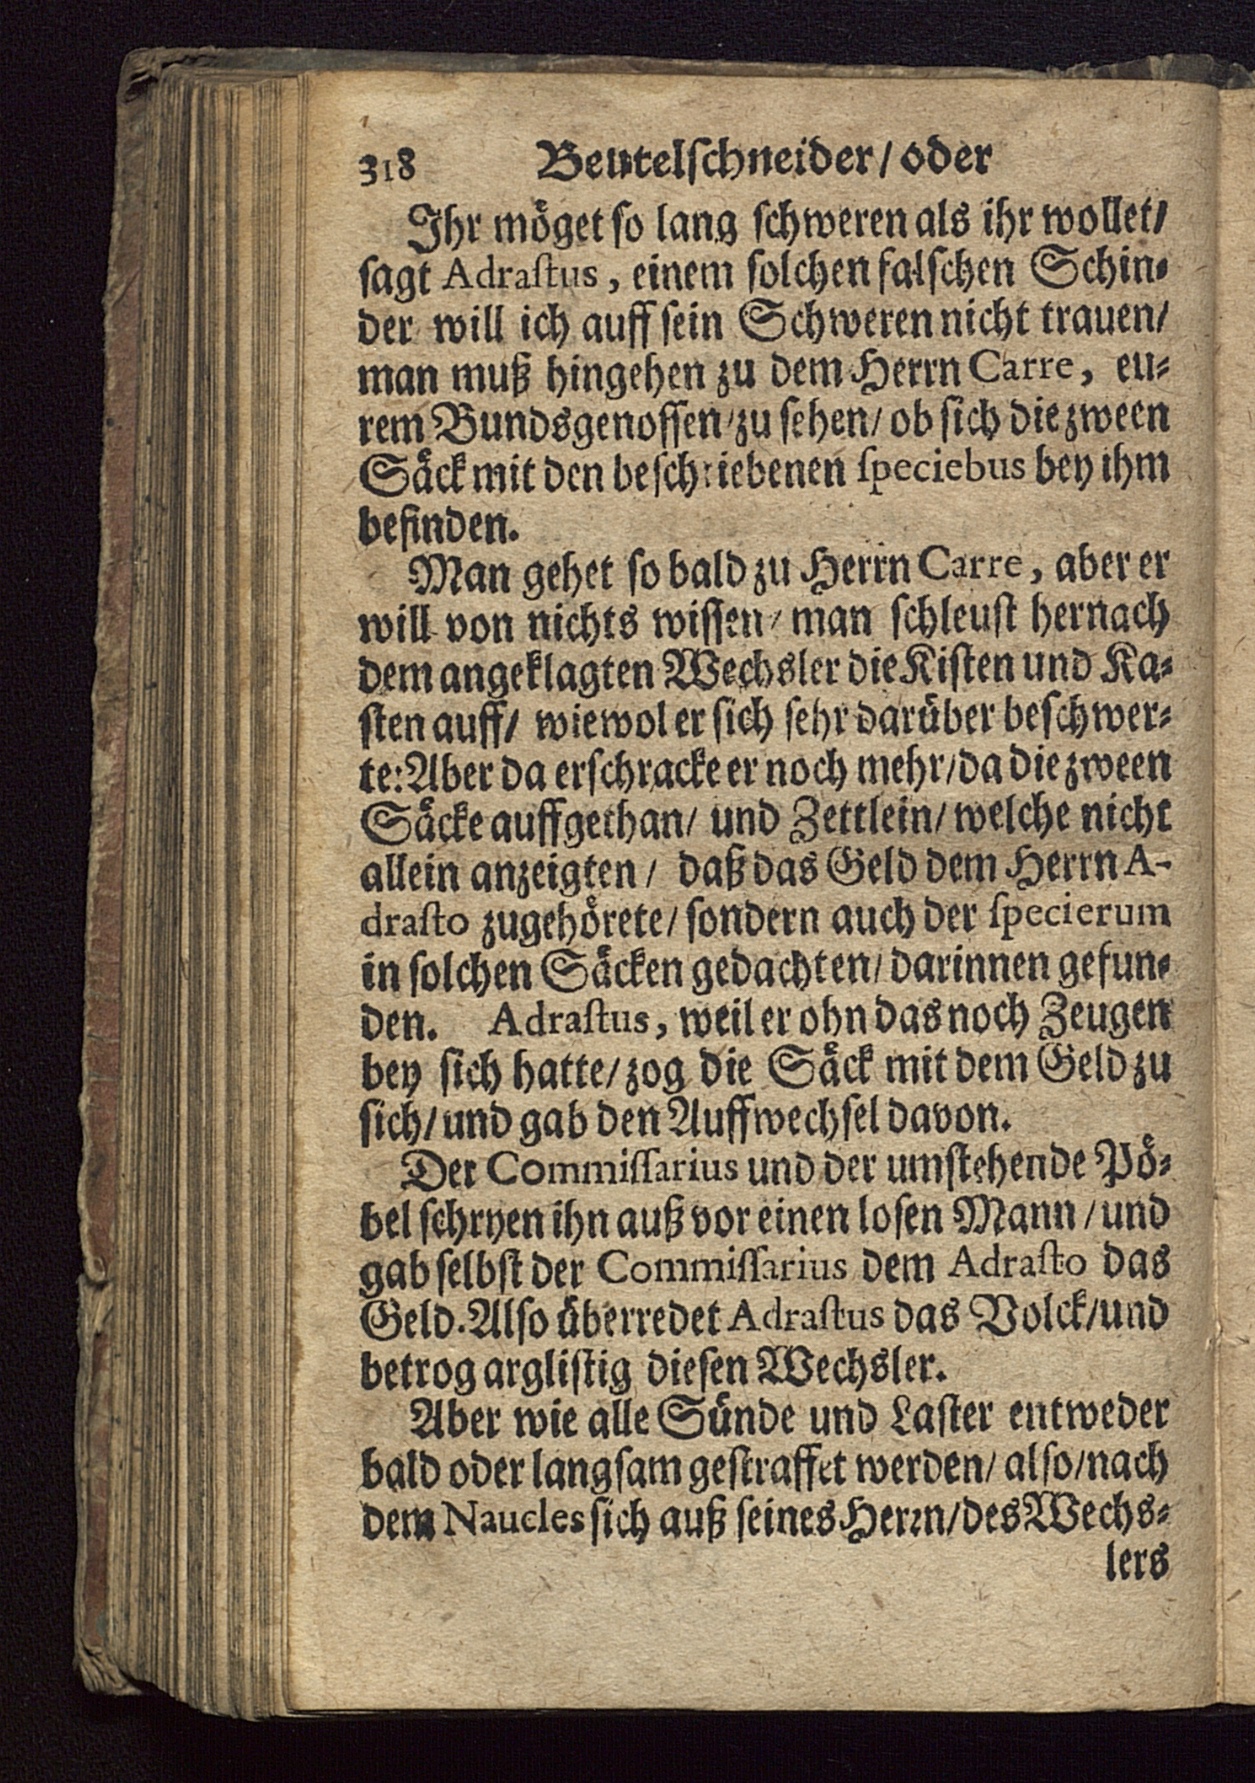 318 Beutelschneider/ oder
Ihr möget so lang schweren als ihr wollet/
sagt Adrastus, einem solchen falschen Schin-
der will ich auff sein Schweren nicht trauen/
man muß hingehen zu dem Herrn Carre, eu-
rem Bundsgenossen/ zu sehen/ ob sich die zween
Säck mit den beschriebenen speciebus bey ihm
befinden.
Man gehet so bald zu Herrn Carre, aber er
will von nichts wissen/ man schleust hernach
dem angeklagten Wechsler die Kisten und Ka-
sten auff/ wiewol er sich sehr darüber beschwer-
te: Aber da erschracke er noch mehr/ da die zween
Säcke auffgethan/ und Zettlein/ welche nicht
allein anzeigten/ daß das Geld dem Herrn A-
drasto zugehörete/ sondern auch der specierum
in solchen Säcken gedachten/ darinnen gefun-
den. Adrastus, weil er ohn das noch Zeugen
bey sich hatte/ zog die Säck mit dem Geld zu
sich/ und gab den Auffwechsel davon.
Der Commissarius und der umstehende Pö-
bel schryen ihn auß vor einen losen Mann/ und
gab selbst der Commissarius dem Adrasto das
Geld. Also überredet Adrastus das Volck/ und
betrog arglistig diesen Wechsler.
Aber wie alle Sünde und Laster entweder
bald oder langsam gestraffet werden/ also/ nach
dem Naucles sich auß seines Herrn/ des Wechs-
lers